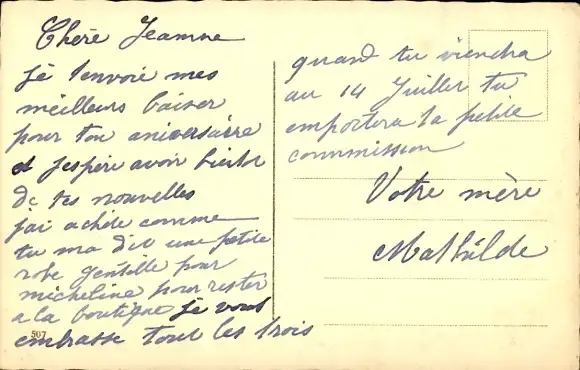 Chère Jeamne
je t'envoie mes
meilleurs baiser
pour ton aniversaire
et j'espère avoir bientot
de tes nouvelles
j'ai acheté comme
tu ma dit une petite
robe gentille pour
micheline pour rester
a la boutique je vous
embrasse tout les trois
507
quand tu viendra
au 14 Juillet tu
emportera ta petite
commission
Votre mère
Mathilde